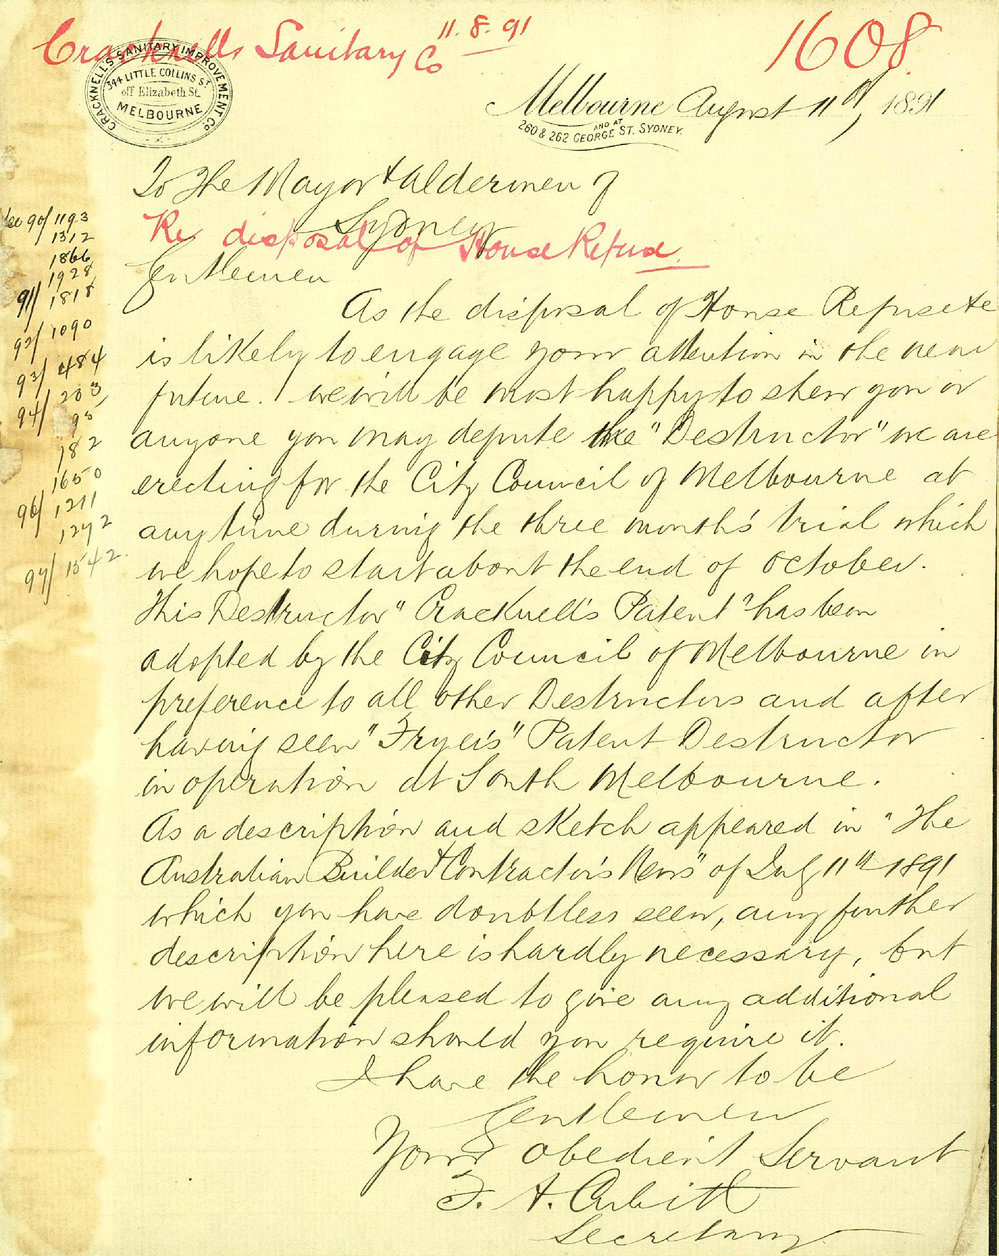 Cracknells Sanitary Co
11.8.91
1608
CRACKNELL'S SANITARY IMPROVEMENT Co
344 LITTLE COLLINS ST
off Elizabeth St.
MELBOURNE
Melbourne August 11th, 1891
AND AT
260 & 262 GEORGE ST. SYDNEY.
To The Mayor & Aldermen of
Sydney
Re disposal of House Refuse.
Gentlemen
As the disposal of House Refuse &c
is likely to engage your attention in the near
future. We will be most happy to shew you or
anyone you may depute the "Destructor" we are
erecting for the City Council of Melbourne at
any time during the three months' trial which
we hope to start about the end of October.
This Destructor "Cracknell's Patent" has been
adopted by the City Council of Melbourne in
preference to all other Destructors and after
having seen "Fryer's" Patent Destructor
in operation at South Melbourne.
As a description and sketch appeared in "The
Australian Builder & Contractor's News" of July 11th 1891
which you have doubtless seen, any further
description here is hardly necessary, but
we will be pleased to give any additional
information should you require it.
I have the honor to be
Gentlemen
Your obedient Servant
F. A.
Secretary
90/1193
1312
1866
1928
91/1818
92/1090
93/484
94/203
95
182
1650
96/1211
1292
97/1542